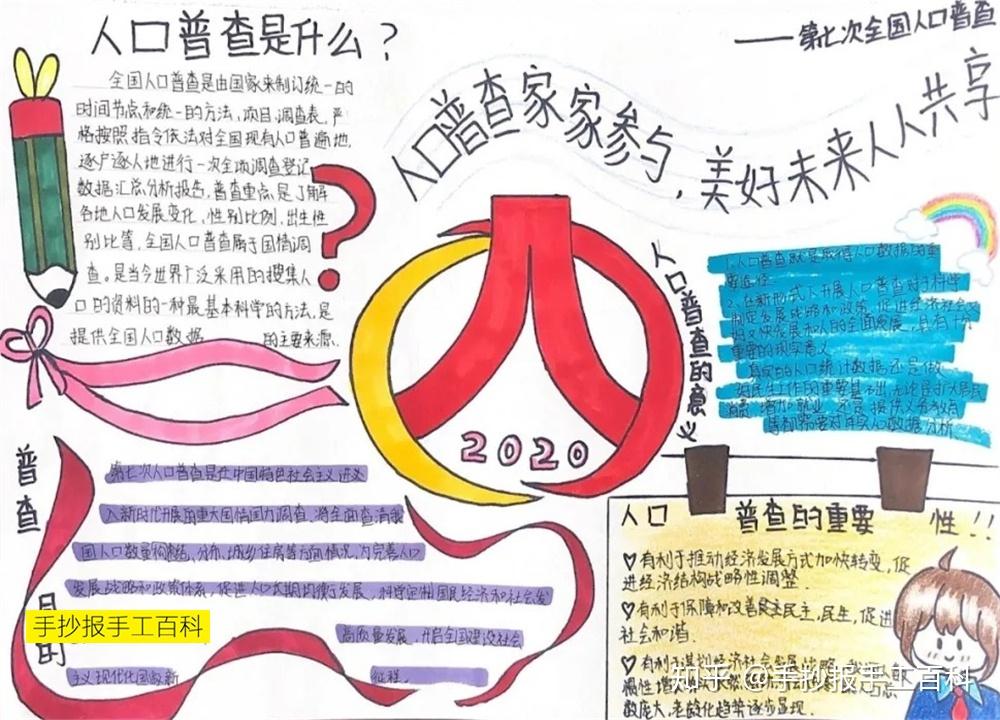 人口普查是什么?
——第七次全国人口普查
人口普查家家参与,美好未来人人共享
全国人口普查是由国家来制订统一的
时间节点和统一的方法,项目,调查表,严
格按照指令依法对全国现有人口普遍地,
逐户逐人地进行一次全项调查登记
数据汇总分析报告,普查重点是了解
各地人口发展变化、性别比例,出生性
别比等,全国人口普查属于国情调
查。是当今世界广泛采用的搜集人
口的资料的一种最基本科学的方法,是
提供全国人口数据 的主要来源。
2020
人口普查的意义
1.人口普查就是取得人口数据的重
要途径
2.在新形式下开展人口普查对于科学
制定发展战略和政策,促进经济社会
重要的现实意义
真实的人口统计数据还是做
普查
目的
第七次人口普查是在中国特色社会主义进义
入新时代开展的重大国情国力调查,将全面查清我
国人口数量、结构、分布、城乡住房等方面情况,为完善人口
发展战略和政策体系,促进人口长期均衡发展,科学定制国民经济和社会发
高质量发展,开启全国建设社会
主义现代化国家新 征程。
手抄报手工百科
人口 普查的重要 性!!
♥有利于推动经济发展方式加快转变,促
进经济结构战略性调整.
♥有利于保障和改善民主,民生,促进
社会和谐.
♥有利 谋划经济社会发展
数庞大,老龄化趋势逐步显现.
知乎 @手抄报手工百科